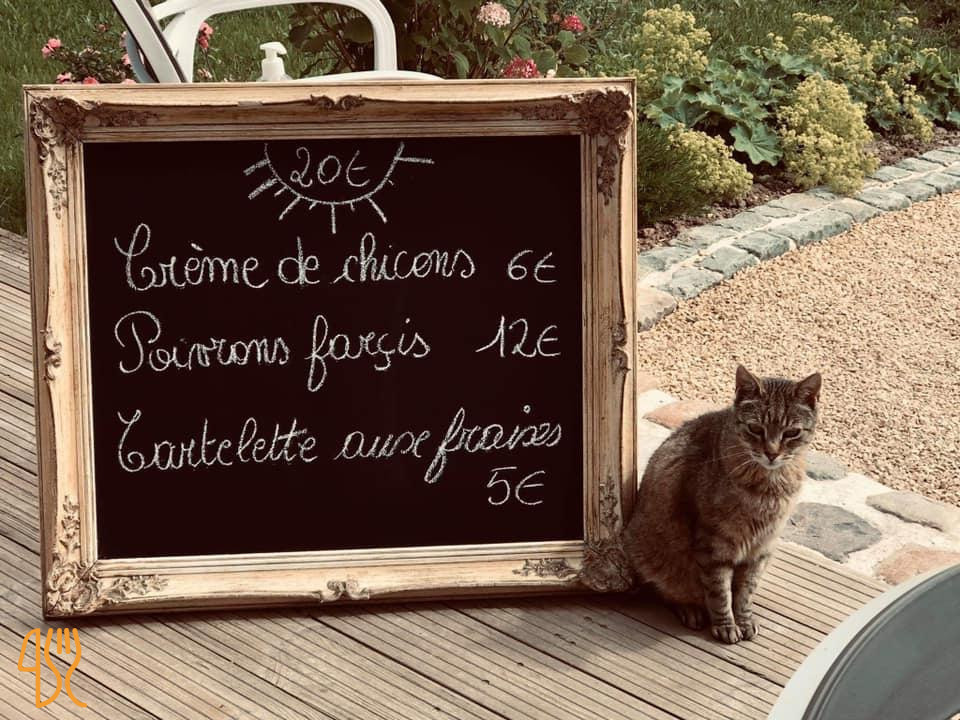 20€
Crème de chicons 6€
Poivrons farçis 12€
Tartelette aux fraises
5€